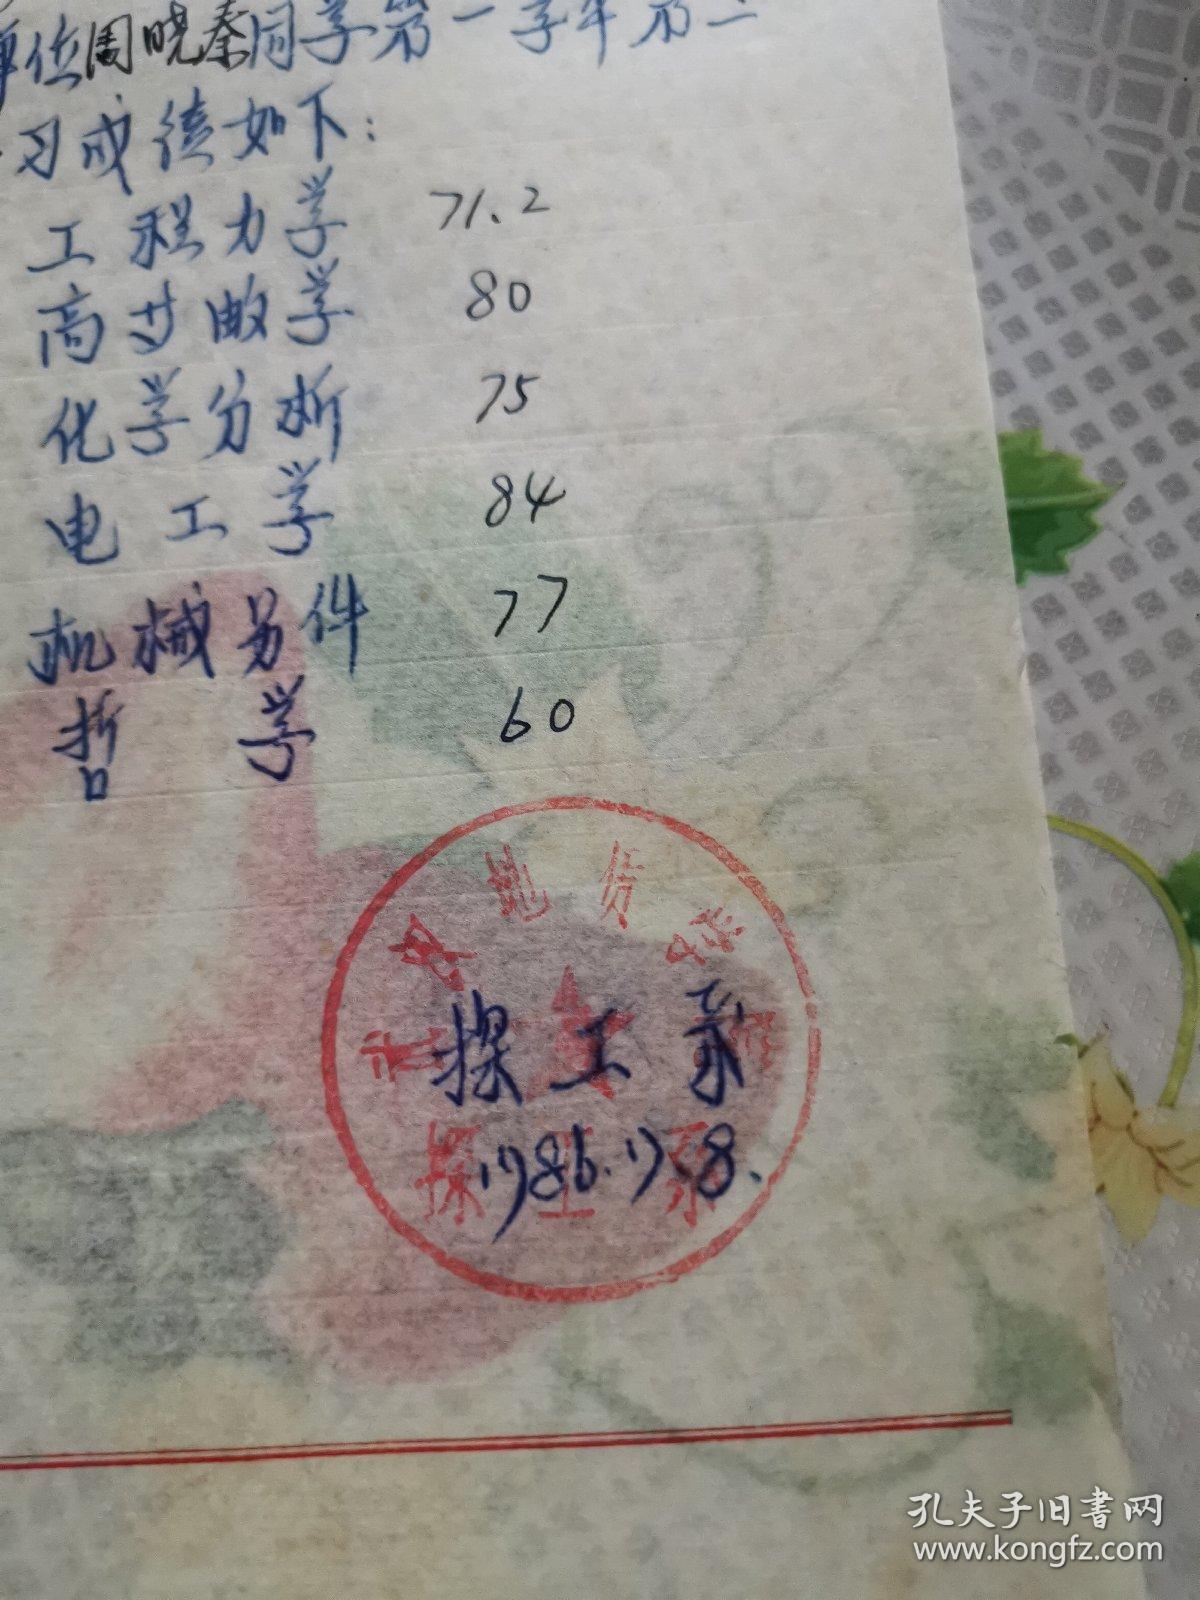 单位周晓秦同学第一学年第二
习成绩如下:
工程力学 71.2
高等数学 80
化学分析 75
电工学 84
机械另件 77
哲学 60
武汉地质学院
探工系
1986.7.8.
探工系
孔夫子旧书网
www.kongfz.com